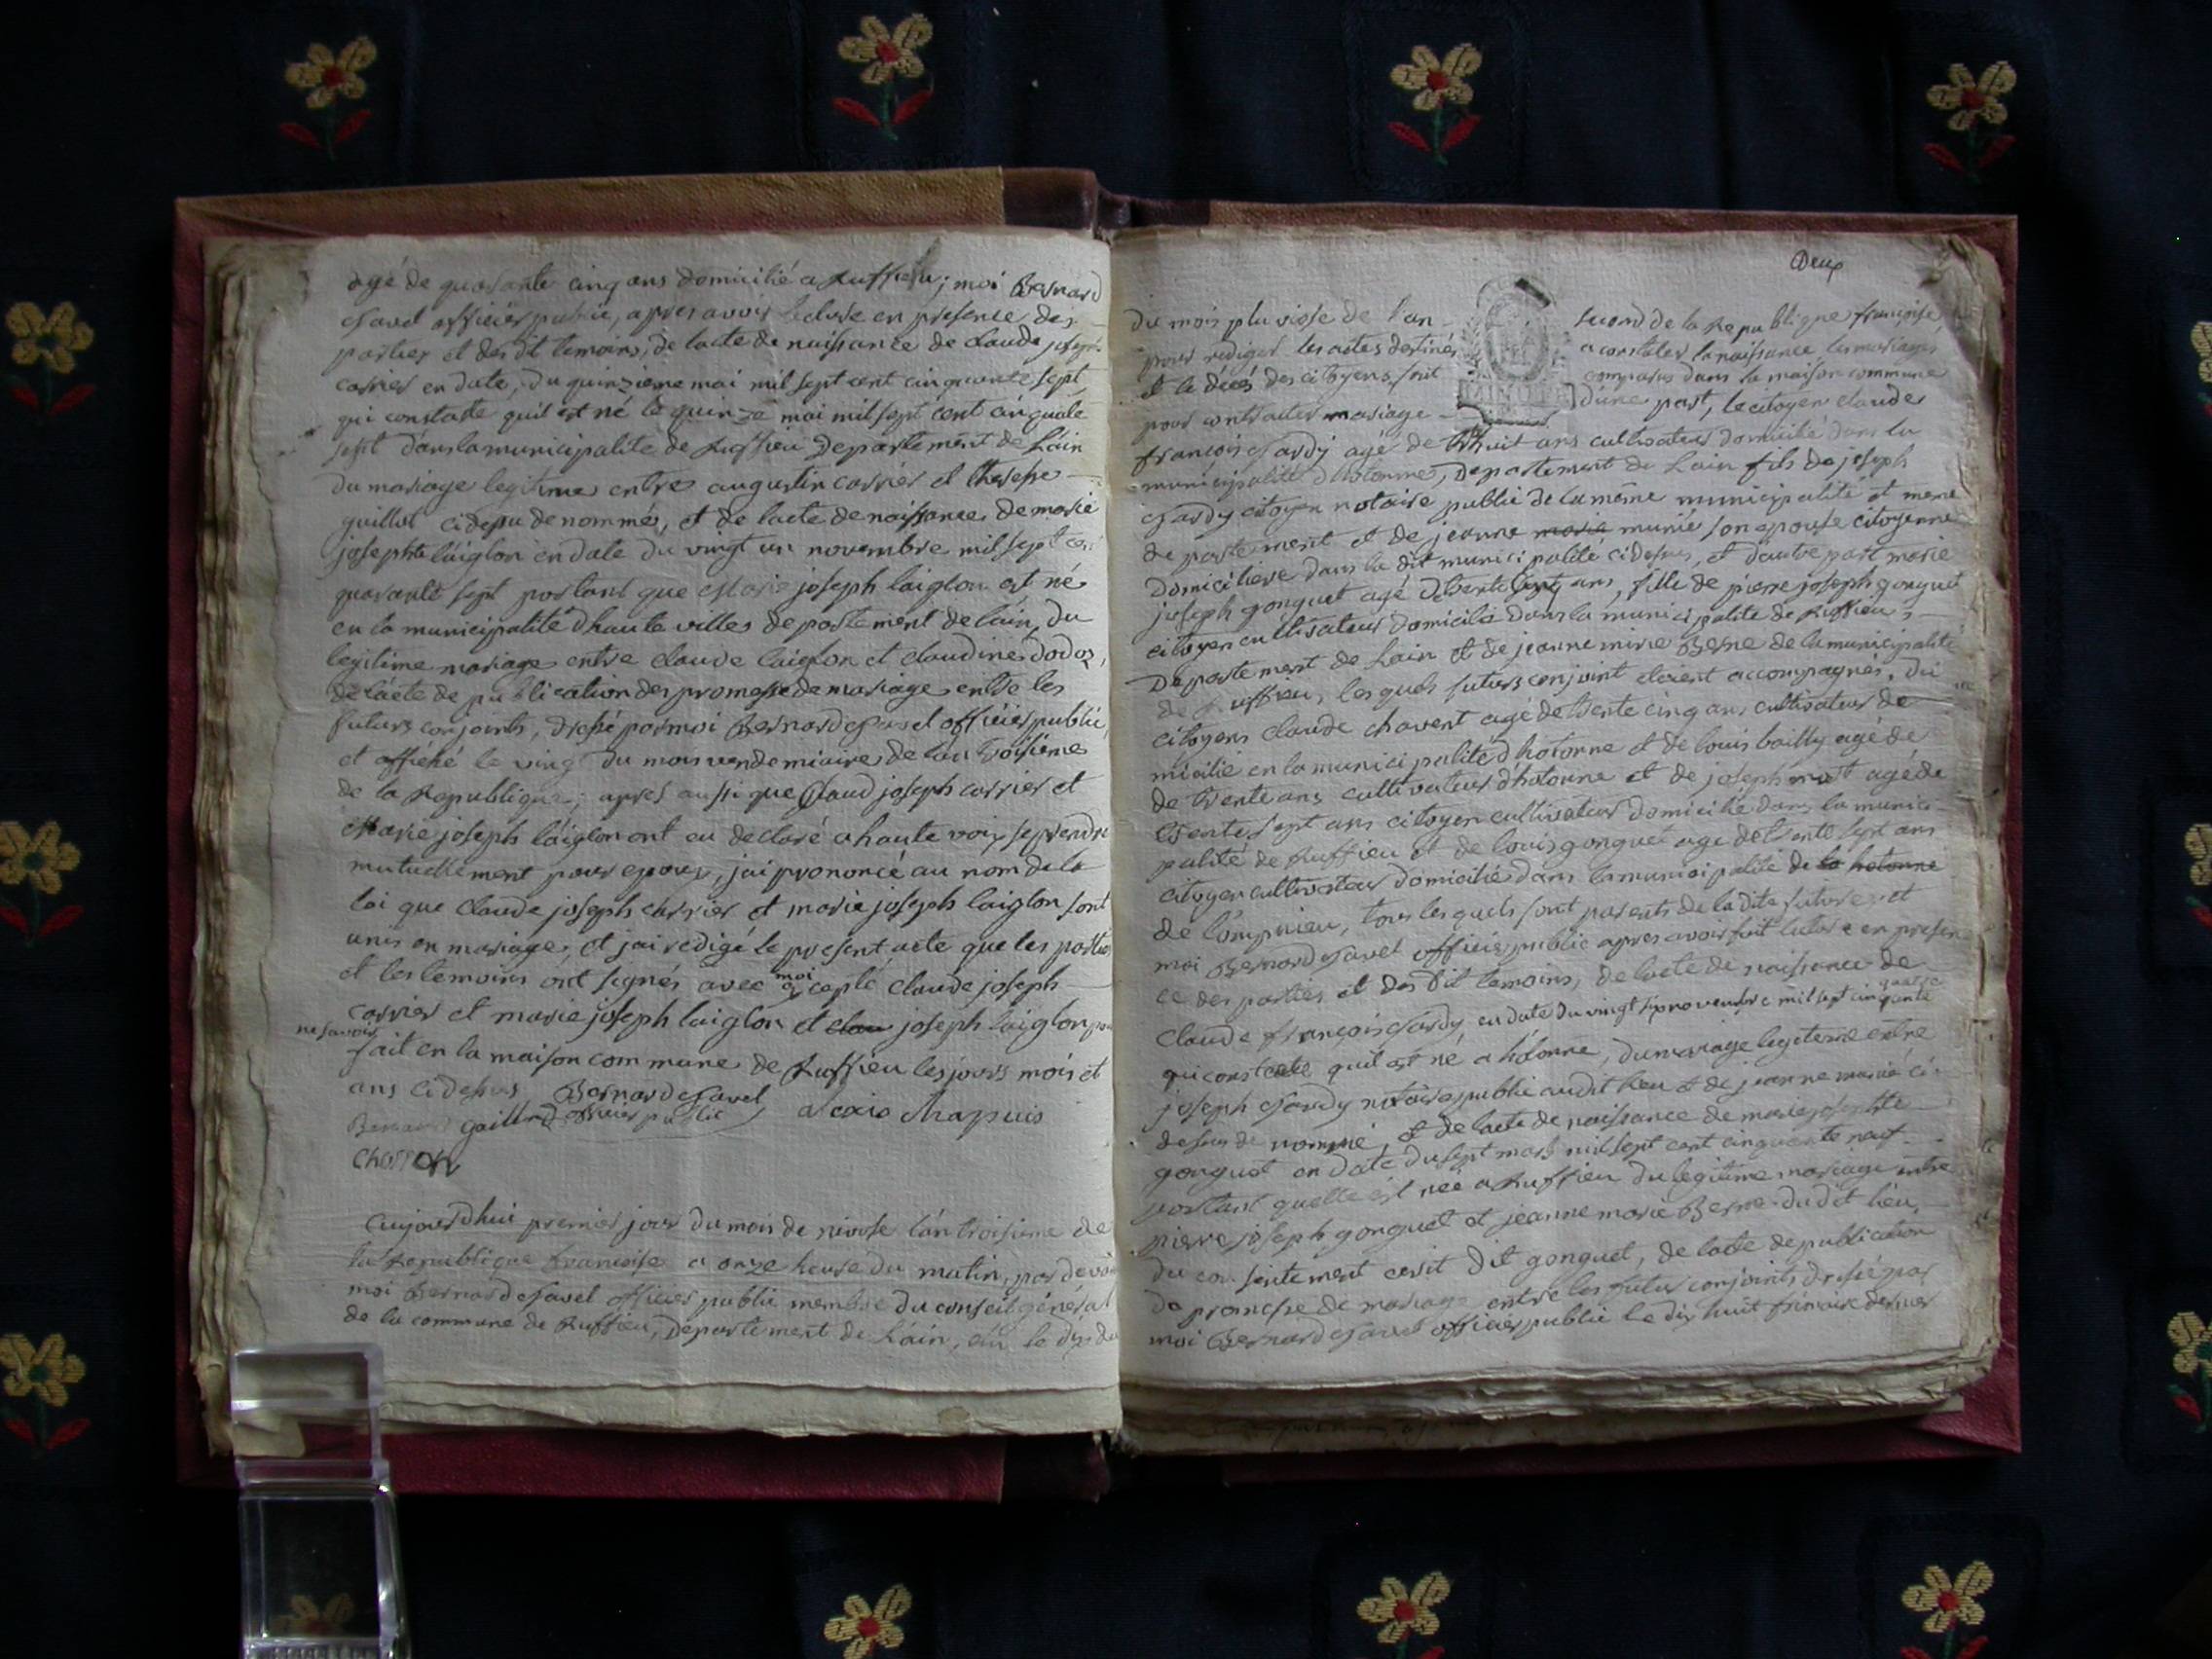 agé de quarante cinq ans domicilié a Ruffieu; moi Bernard
Savel officier public, apres avoir lecture en presence des
parties et des dit temoins, de lacte de naissance de claude joseph
carrier en date, du quinzieme mai mil sept cent cinquante sept
qui constate quil est né le quinze mai mil sept cent cinquate
sept dans la municipalite de Ruffieu Departement de Lain
du mariage legitime entre augustin carrier et
guillot cidessu denommés, et de lacte de naissance de marie
josephte laiglon en date du vingt un novembre mil sept cent
quarante sept portant que Marie joseph laiglon est né
en la municipalité dhaute ville departement de lain, du
legitime mariage entre claude laiglon et claudine
de lacte de publication des promesse de mariage entre les
futurs conjoints, dressé par moi Bernard Savel officier public
et affiché le vingt du mois vendemiaire de lan troisieme
de la Republique; apres aussi que Claud joseph carrier et
Marie joseph laiglon ont eu declaré a haute voix se prendre
mutuellement pour epoux, jai prononcé au nom de la
loi que claude joseph carrier et marie joseph laiglon sont
unis en mariage, et jai redigé le present acte que les parties
et les temoins ont signés avec moi claude joseph
carrier et marie joseph laiglon et clau joseph laiglon pour
ne savoir
fait en la maison commune de Ruffieu les jours mois et
ans cidessus Bernard Savel
Bernard gaillard officier public alexis Chapuis
Aujourdhui premier jour du mois de nivose lan troisieme de
la Republique francoise a onze heure du matin, par devant
moi Bernard Savel officier public membre du conseil général
de la commune de Ruffieu, Departement de Lain, élu le dix du
Deux
du mois pluviose de l'an second de la Republique françoise
pour rediger les actes destinés a constater la naissance, les mariages
et le décés des citoyens, soit comparus dans la maison commune
pour contracter mariage dune part, le citoyen claude
françois Sardy agé de ans cultivateur domicilié dans la
municipalité dhotonne, Departement de Lain fils de joseph
Sardy citoyen notaire public de la même municipalité et meme
departement et de jeanne marie munié son epouse citoyenne
domiciliere dans la dit municipalité cidessus, et dautre part marie
joseph gonguet agé de trente ans, fille de pierre joseph gonguet
citoyen cultivateur domicilié dans la municipalité de Ruffieu,
Departement de Lain et de jeanne mirie Berne de la municipalité
de Ruffieu, lesquels futurs conjoint etoient accompagnés, du
citoyens claude chavent agé de trente cinq ans cultivateur do
micilié en la municipalité dhotonne et de louis bailly agé de
de trente ans cultivateur dhotonne et de joseph agé de
trente sept ans citoyen cultivateur domicilié dans la munici
palité de Ruffieu et de louis gonguet age de trente sept ans
citoyen cultivateur domicilié dans la municipalité de la hotonne
de lompnieu, tous lesquels sont parents de la dite future et
moi Bernard Savel officier public apres avoir fait lecture en presen
ce des parties et des dit temoins, de lacte de naissance de
Claude françois Sardy, en date du vingt novembre mil sept cinquante
qui constate quil est né a hotonne, du mariage legiteme entre
joseph Sardy notaire public audit lieu et de jeanne munié ci
desus de nommé, et de lacte de naissance de marie josephte
gonguet en date du sept mars mil sept cent cinquante neuf
portant quelle est née a Ruffieu du legitime mariage entre
pierre joseph gonguet et jeanne marie Berne du dit lieu,
du consentement dit gonguet, de lacte de publication
de promesse de mariage entre les futur conjoints dressé par
moi Bernard Savel officier public le dix huit frimaire dernier